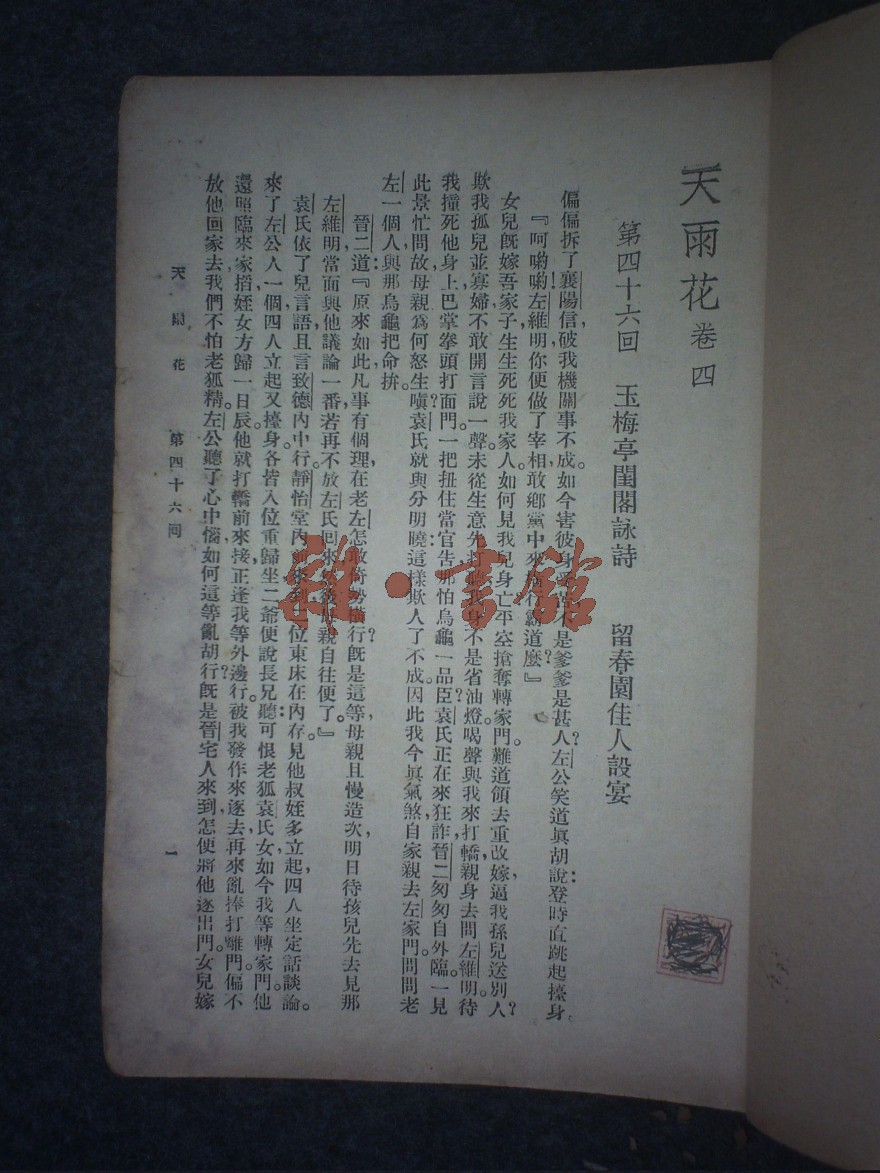 天雨花 卷四
第四十六回 玉梅亭閨閣詠詩 留春園佳人設宴
偏偏拆了襄陽信，破我機關事不成。如今害彼身 不是爹爹是甚人？左公笑道眞胡說：登時直跳起擡身。
『呵喲喲！左維明你便做了宰相，敢鄉黨中來橫行霸道麼？』
女兒旣嫁吾家子，生生死死我家人。如何見我兒身亡，平空搶奪轉家門。難道領去重改嫁，逼我孫兒送別人？
欺我孤兒並寡婦，不敢開言說一聲。未從生意先打 不是省油燈。喝聲與我來打轎，親身去問左維明。待
我撞死他身上，巴掌拳頭打面門。一把扭住當官告，那怕烏龜一品臣。袁氏正在來狂詐，晉二匆匆自外臨。一見
此景忙問故：母親爲何怒生嗔？袁氏就與分明曉：這樣欺人了不成。因此我今眞氣煞，自家親去左家門。問問老
左一個人，與那烏龜把命拚。
晉二道：『原來如此，凡事有個理在，老左怎敢倚勢橫行？旣是這等，母親且慢造次，明日待孩兒先去見那
左維明，當面與他議論一番，若再不放左氏回來， 母親自往便了。』
袁氏依了兒言語，且言致德內中行。靜怡堂內前來到，一位東床在內存。見他叔姪多立起，四八坐定話談論。
來了左公人一個，四人立起又擡身。各皆入位重歸坐，二爺便說長兄聽：可恨老狐袁氏女，如今我等轉家門。他
還照臨來家搯，姪女方歸一日辰。他就打轎前來接，正逢我等外邊行。被我發作來逐去，再來亂捧打離門。偏不
放他回家去，我們不怕老狐精。左公聽了心中惱：如何這等亂胡行？旣是晉宅人來到，怎便將他逐出門。女兒嫁
天雨花 第四十六回 一
雜·書館